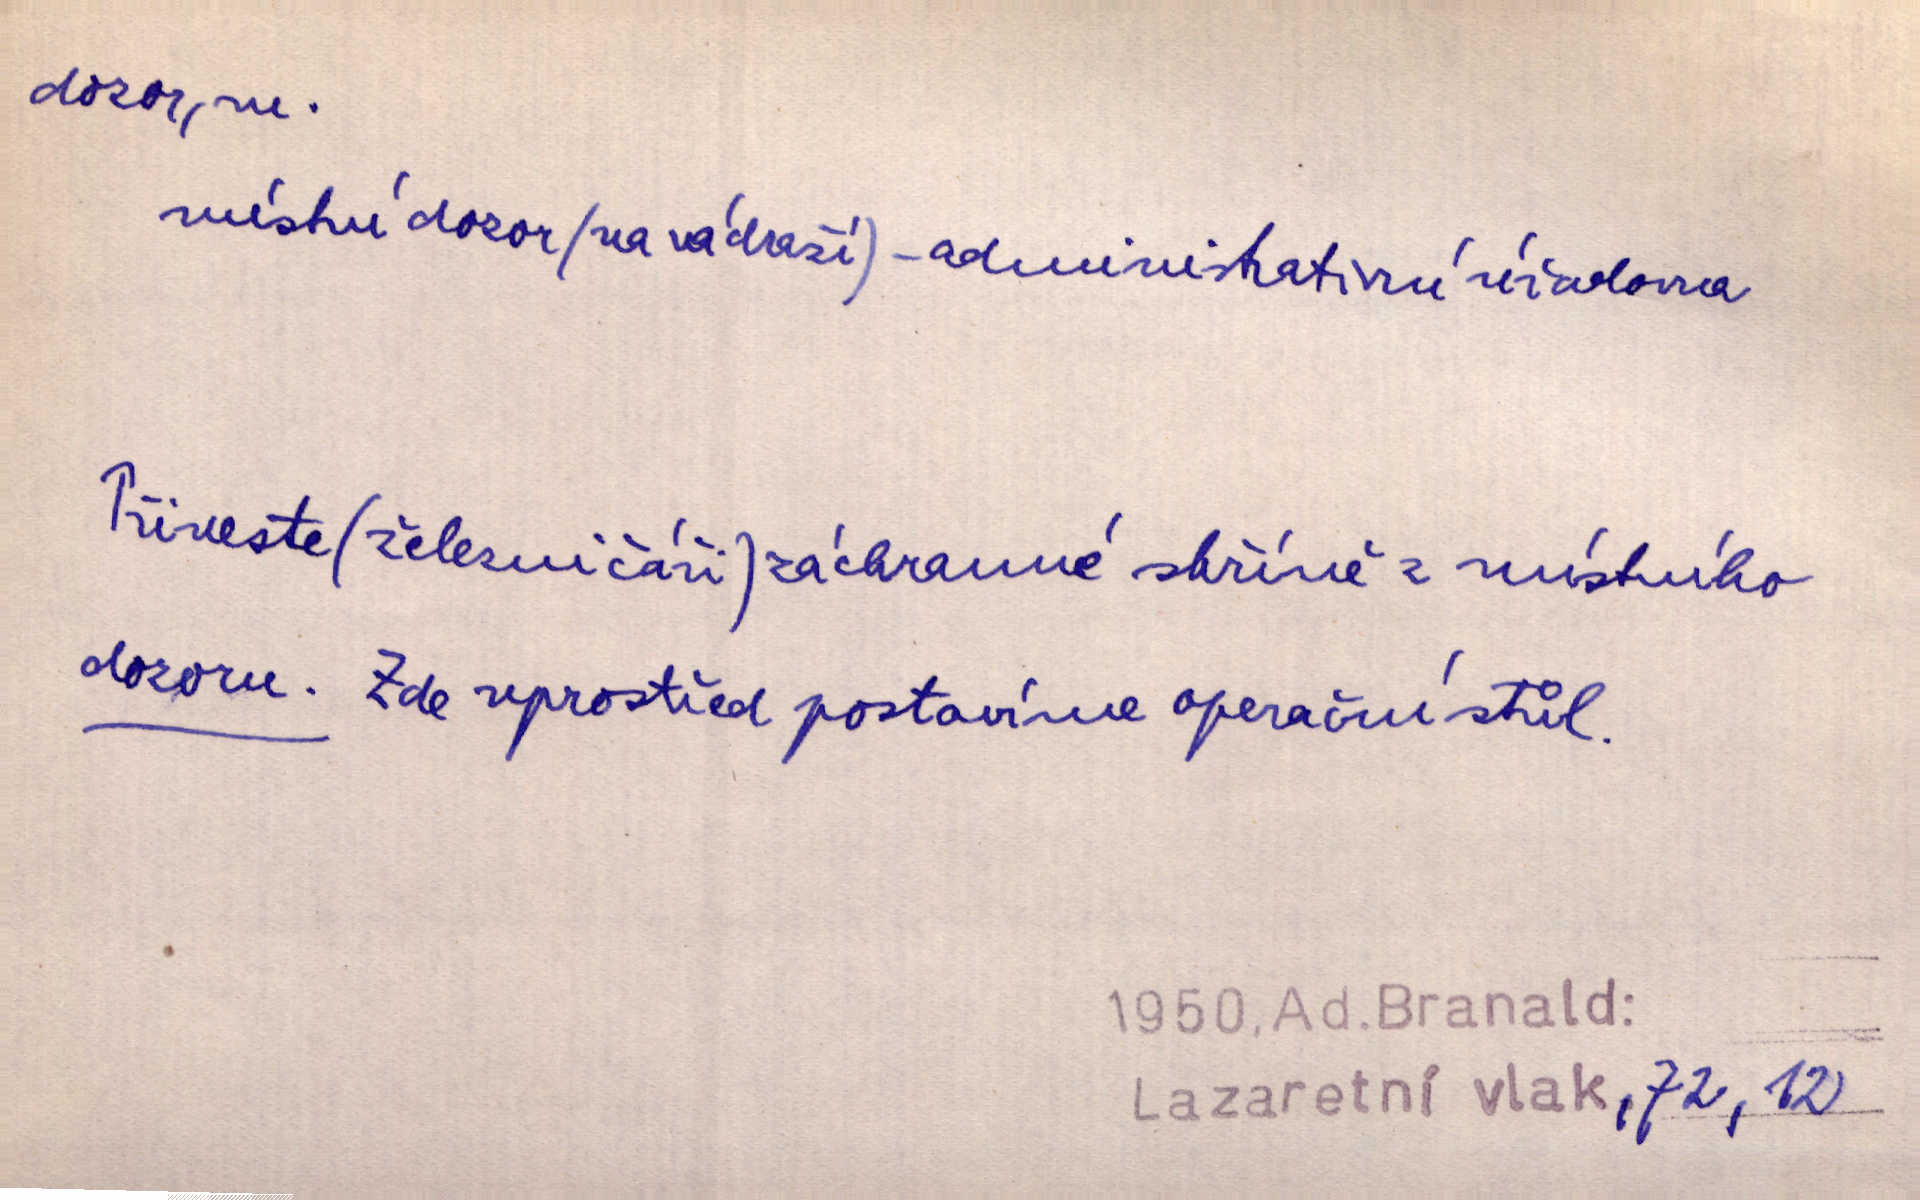 dozor, m.
místní dozor (na nádraží) - administrativní úřadovna
Přineste (železničáři) záchranné skříně z místního
dozoru. Zde uprostřed postavíme operační stůl.
1950, Ad. Branald:
Lazaretní vlak, 72, 12